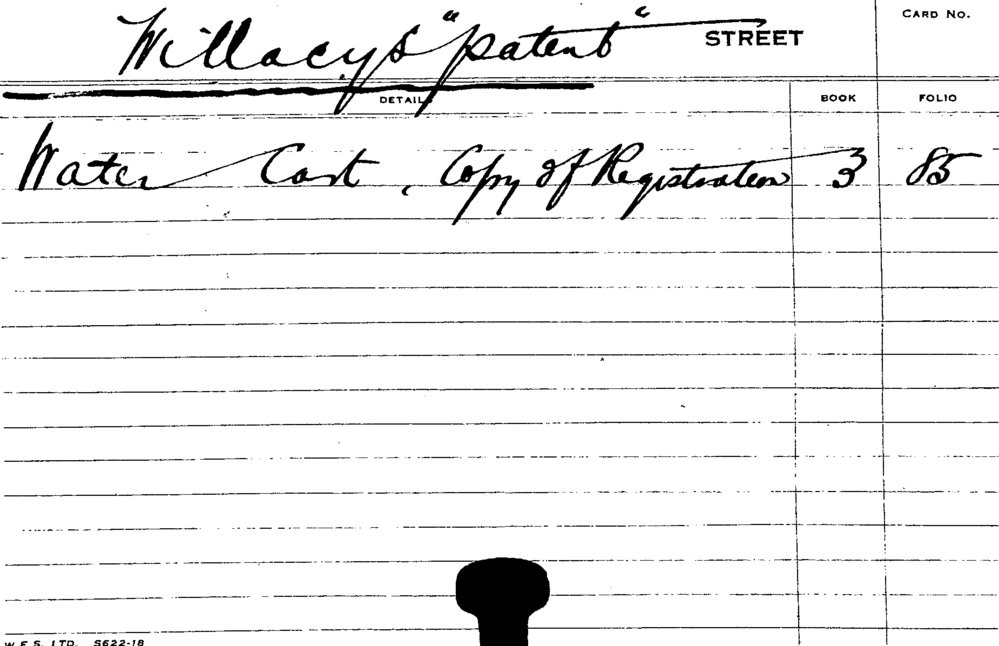 CARD NO.
Willacys "patent" STREET
DETAILS BOOK FOLIO
Water Cart, Copy of Registration 3 85
W.F.S. LTD. S622-18